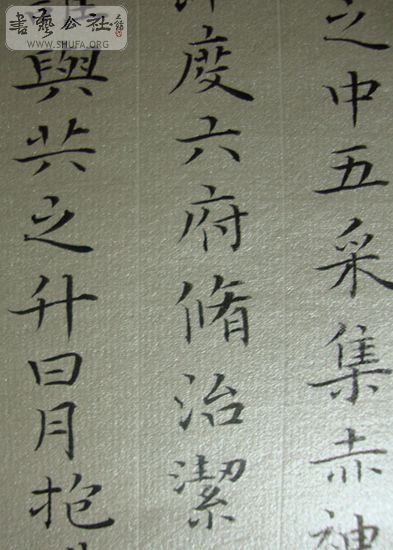 之中五采集赤神
度六府脩治潔
與共之升日月抱
書藝公社
WWW.SHUFA.ORG